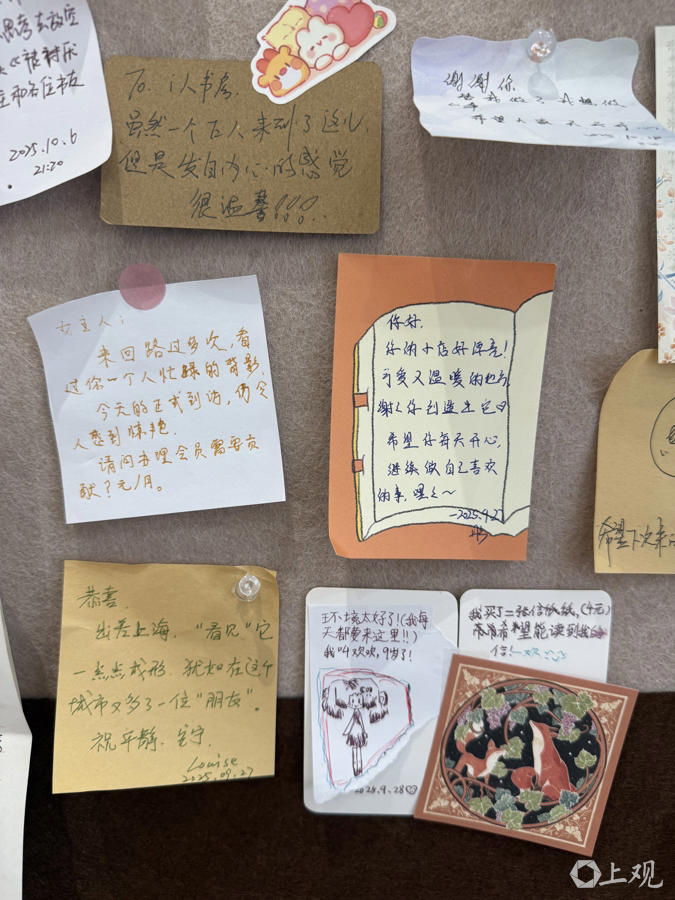 2025.10.6
21:20
To. 12人书房.
虽然一个人来到了这儿,
但是发自内心的感觉
很温馨!!!..
谢谢你
女主人:
来回路过多次,看
过你一个人忙碌的背影,
今天的正式到访,仍令
人感到惊艳.
请问办理会员需要贡
献?元/月。
你好,
你的小店好漂亮!
可爱又温暖的地方
谢谢你创造出它
希望你每天开心,
继续做自己喜欢
的事,嘿嘿~
—2025.9.27
希望下次来
恭喜.
出差上海,“看见”它
一点点成形.犹如在这个
城市又多了一位“朋友”。
祝平静.安宁.
Louise
2025.09.27
环境太好了!(我每
天都要来这里!!)
我叫欢欢,9岁了!
2025.9.28
我买了二张信纸纸,(4元)
希希希望能读到我
信!—欢
上观